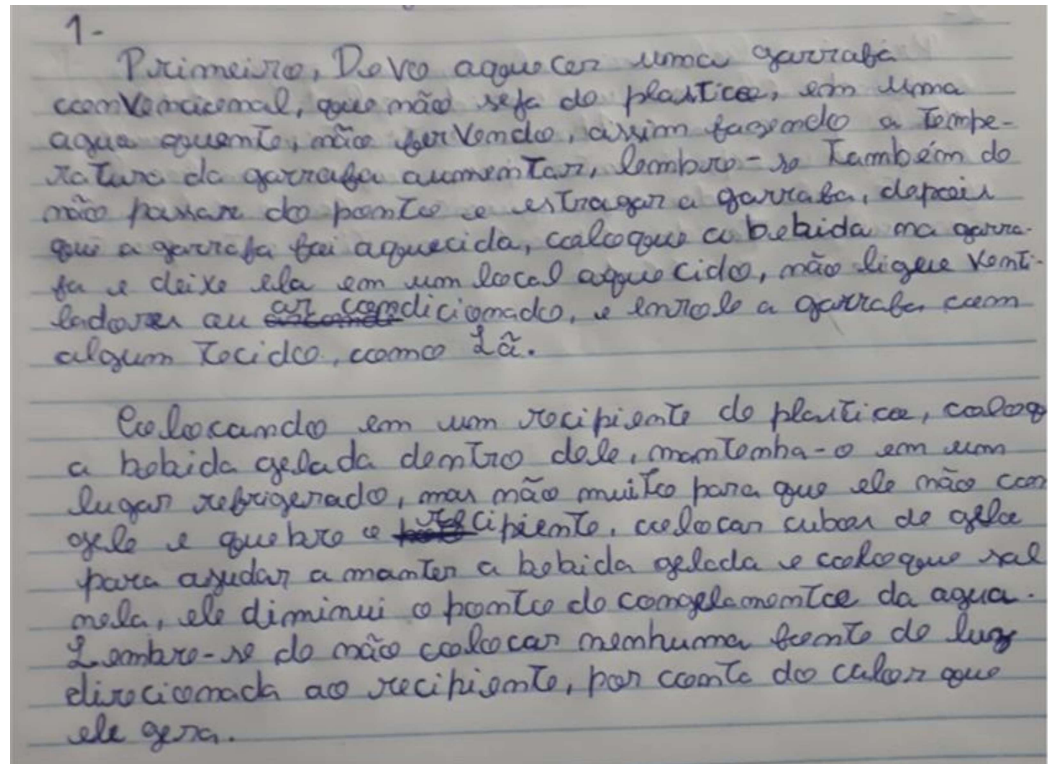 1-
Primeiro, Devo aquecer uma garrafa
convencional, que não seja de plastico, em uma
agua quente, não fervendo, assim fazendo a tempe-
ratura da garrafa aumentar, lembre-se também de
não passar do ponto e estragar a garrafa, depois
que a garrafa foi aquecida, coloque a bebida na garra-
fa e deixe ela em um local aquecido, não ligue venti-
ladores ou ar condicionado, e enrole a garrafa com
algum tecido, como Lã.
Colocando em um recipiente de plastico, coloq
a bebida gelada dentro dele, mantenha-o em um
lugar refrigerado, mas não muito para que ele não con
gele e quebre o recipiente, colocar cubos de gelo
para ajudar a manter a bebida gelada e coloque sal
nela, ele diminui o ponto de congelamento da agua.
Lembre-se de não colocar nenhuma fonte de luz
direcionada ao recipiente, por conta do calor que
ele gera.